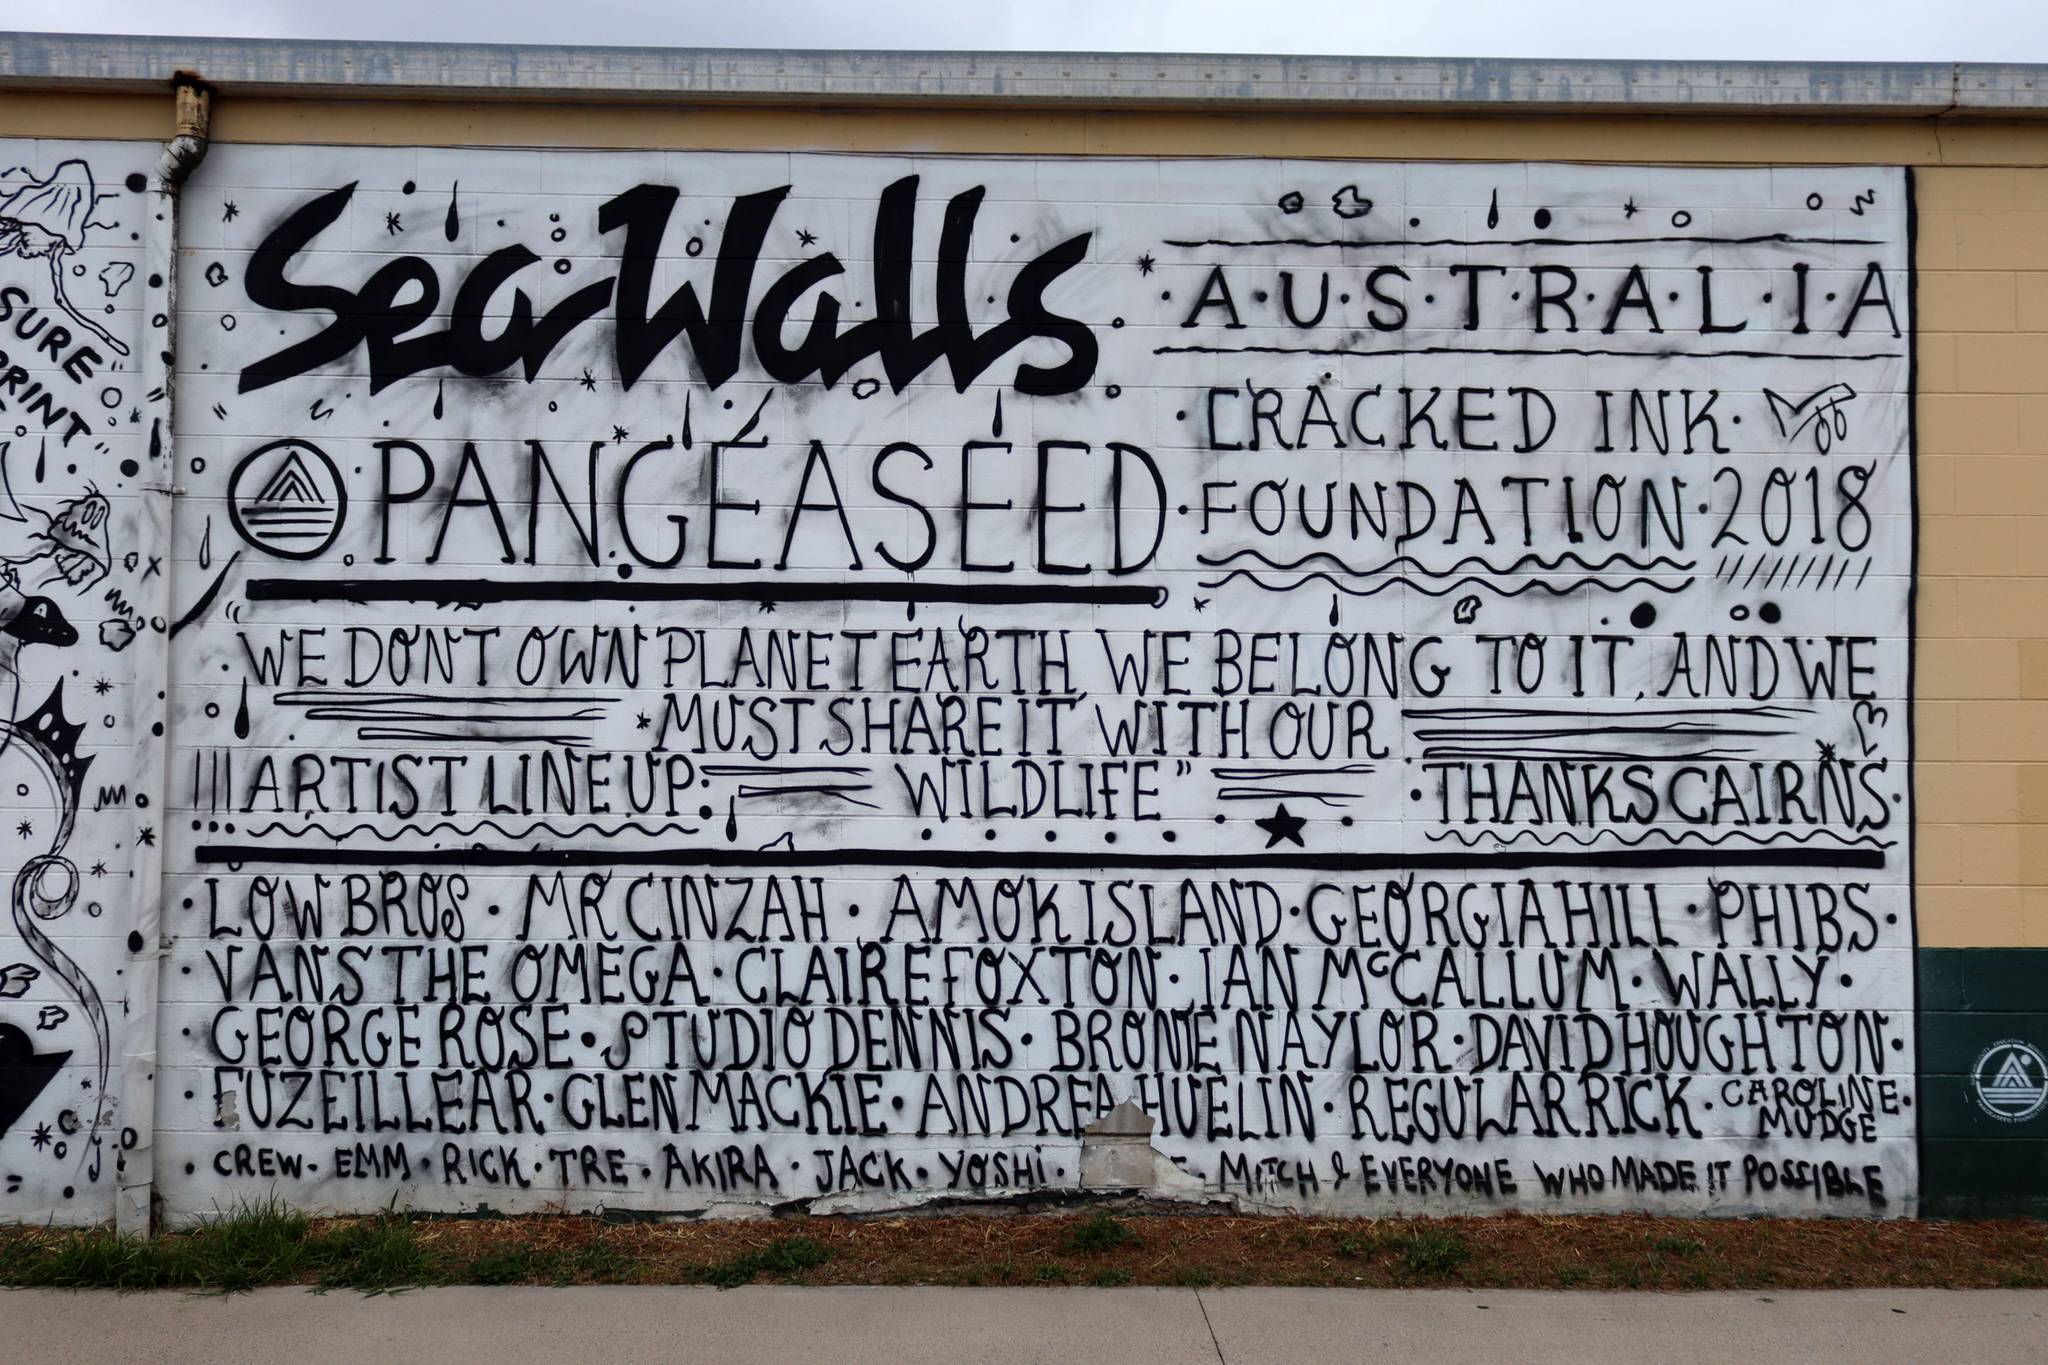 SURE
PRINT"
Sea Walls
·A·U·S·T·R·A·L·I·A
·CRACKED INK·
PANGEASEED
·FOUNDATION·2018
"WE DON'T OWN PLANET EARTH, WE BELONG TO IT, AND WE
MUST SHARE IT WITH OUR
WILDLIFE"
ARTIST LINE UP:
·THANKS CAIRNS·
·LOW BROS· MR CINZAH · AMOK ISLAND·GEORGIA HILL · PHIBS·
·VANS THE OMEGA·CLAIRE FOXTON·IAN McCALLUM·WALLY·
·GEORGE ROSE·STUDIO DENNIS·BRONTE NAYLOR·DAVID HOUGHTON·
·FUZEILLEAR·GLEN MACKIE·ANDREA HUELIN·REGULAR RICK·CAROLINE MUDGE·
·CREW·EMM·RICK·TRE·AKIRA·JACK·YOSHi· · MITCH & EVERYONE WHO MADE IT POSSIBLE